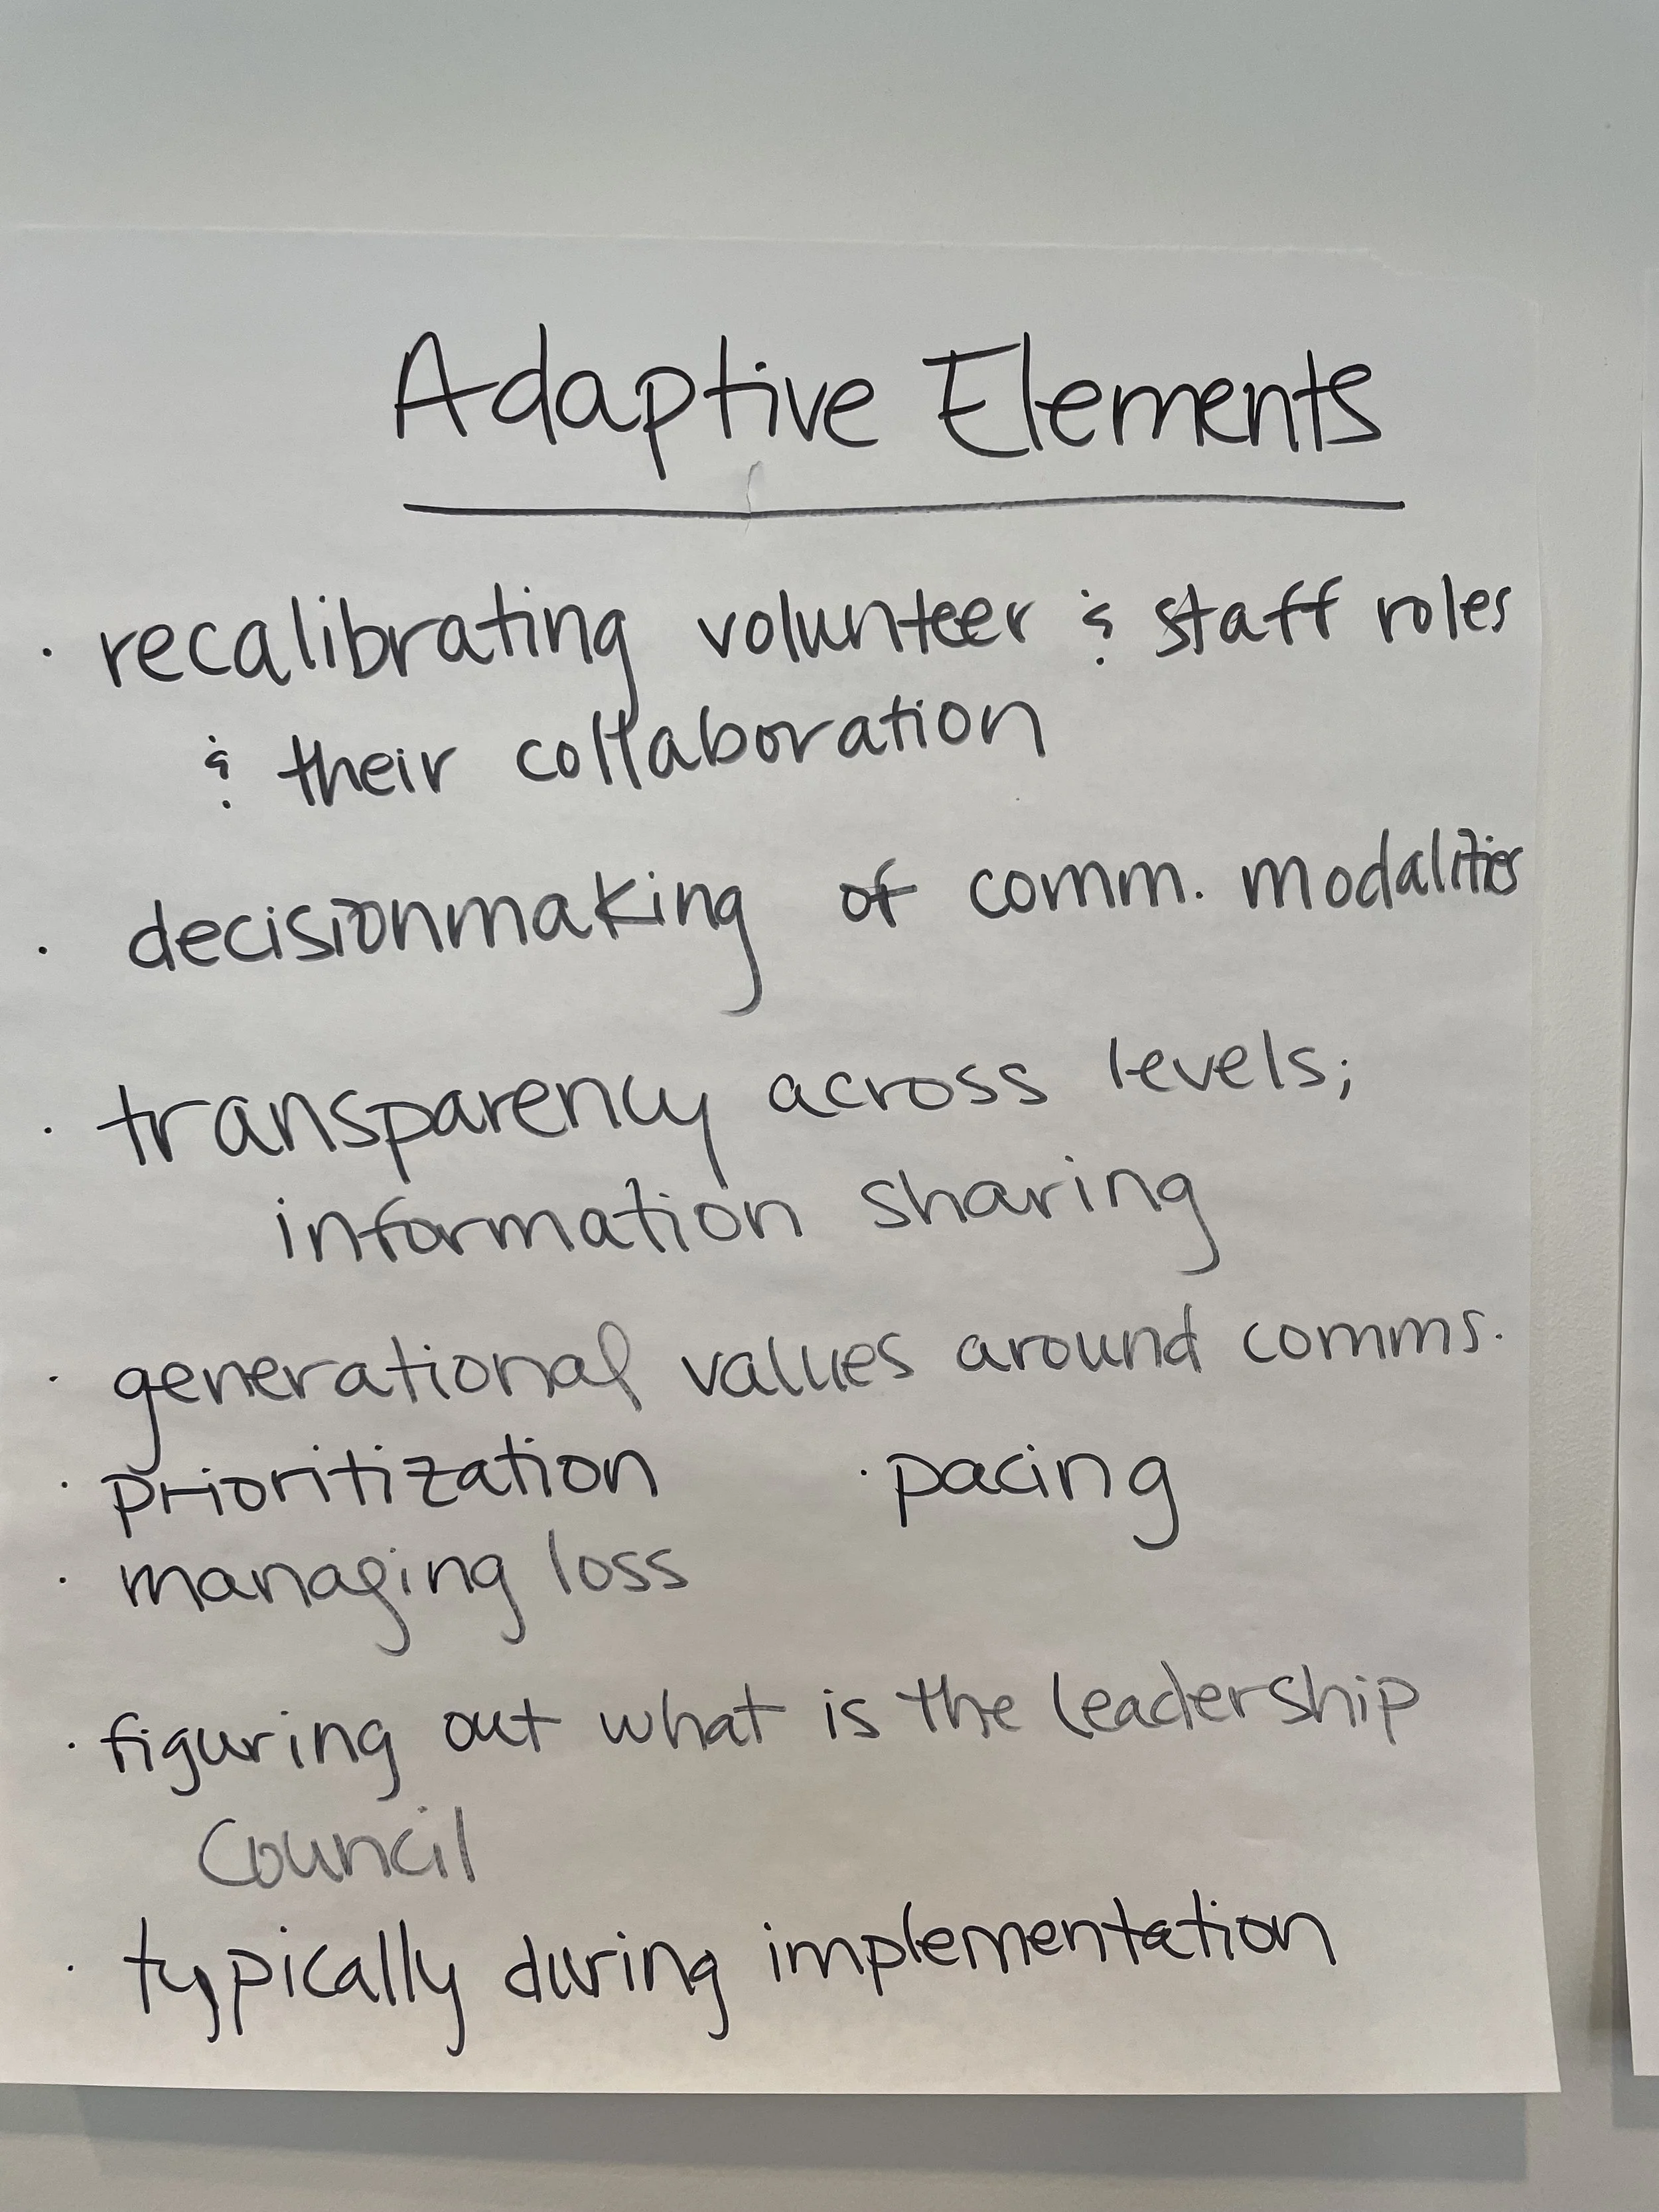 Adaptive Elements
· recalibrating volunteer & staff roles
& their collaboration
· decisionmaking of comm. modalities
· transparency across levels;
information sharing
· generational values around comms.
· prioritization · pacing
· managing loss
· figuring out what is the leadership
Council
· typically during implementation